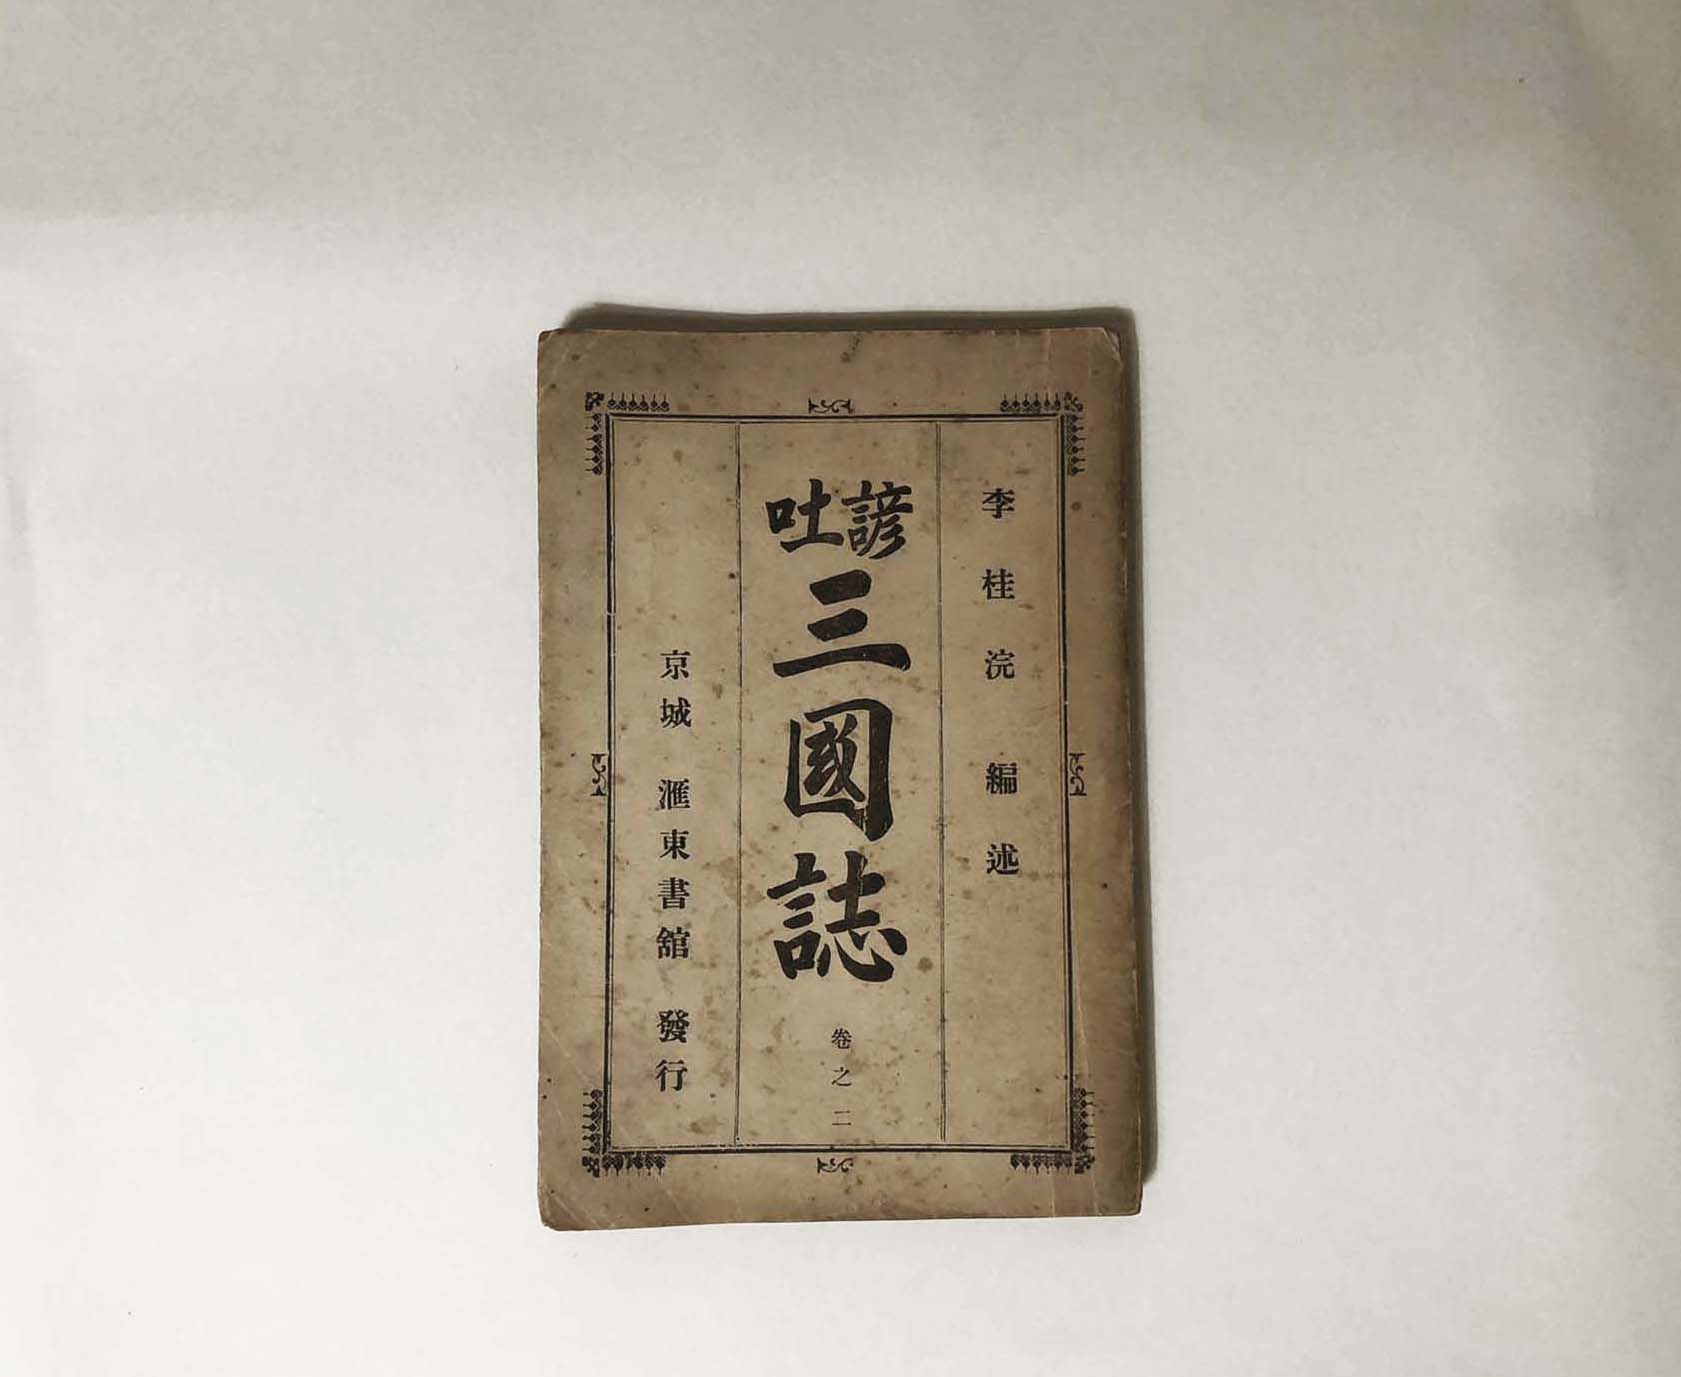 李桂浣 編述
諺吐
三國誌
卷之二
京城 滙東書舘 發行